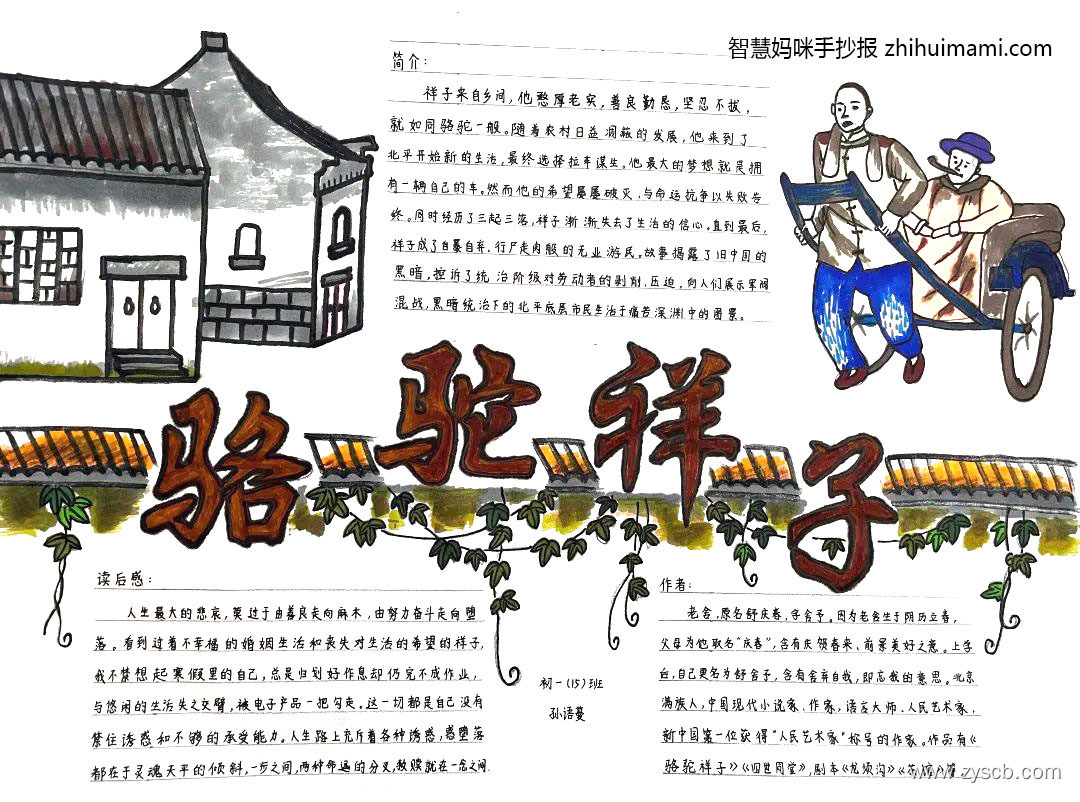 智慧妈咪手抄报 zhihuimami.com
简介：
祥子来自乡间，他憨厚老实，善良勤恳，坚忍不拔，
就如同骆驼一般。随着农村日益凋敝的发展，他来到了
北平开始新的生活，最终选择拉车谋生。他最大的梦想就是拥
有一辆自己的车。然而他的希望屡屡破灭，与命运抗争以失败告
终。同时经历了三起三落，祥子渐渐失去了生活的信心。直到最后，
祥子成了自暴自弃、行尸走肉般的无业游民。故事揭露了旧中国的
黑暗，控诉了统治阶级对劳动者的剥削、压迫，向人们展示军阀
混战，黑暗统治下的北平底层市民生活于痛苦深渊中的图景。
骆驼祥子
读后感：
人生最大的悲哀，莫过于由善良走向麻木，由努力奋斗走向堕
落。看到过着不幸福的婚姻生活和丧失对生活的希望的祥子，
我不禁想起寒假里的自己，总是归划好作息却仍完不成作业，
与悠闲的生活失之交臂，被电子产品一把勾走。这一切都是自己没有
禁住诱惑和不够的承受能力。人生路上充斥着各种诱惑，惑堕落
都在于灵魂天平的倾斜，一步之间，两种命运的分叉，救赎就在一念之间.
初一(15)班
孙语蔓
作者：
老舍，原名舒庆春，字舍予。因为老舍生于阴历立春，
父母为他取名"庆春"，含有庆贺春来、前景美好之意。上学
后，自己更名为舒舍予，含有舍弃自我，即忘我的意思。北京
满族人，中国现代小说家、作家，语言大师、人民艺术家，
新中国第一位获得"人民艺术家"称号的作家。作品有《
骆驼祥子》《四世同堂》，剧本《龙须沟》《茶馆》等。
www.zyscb.com